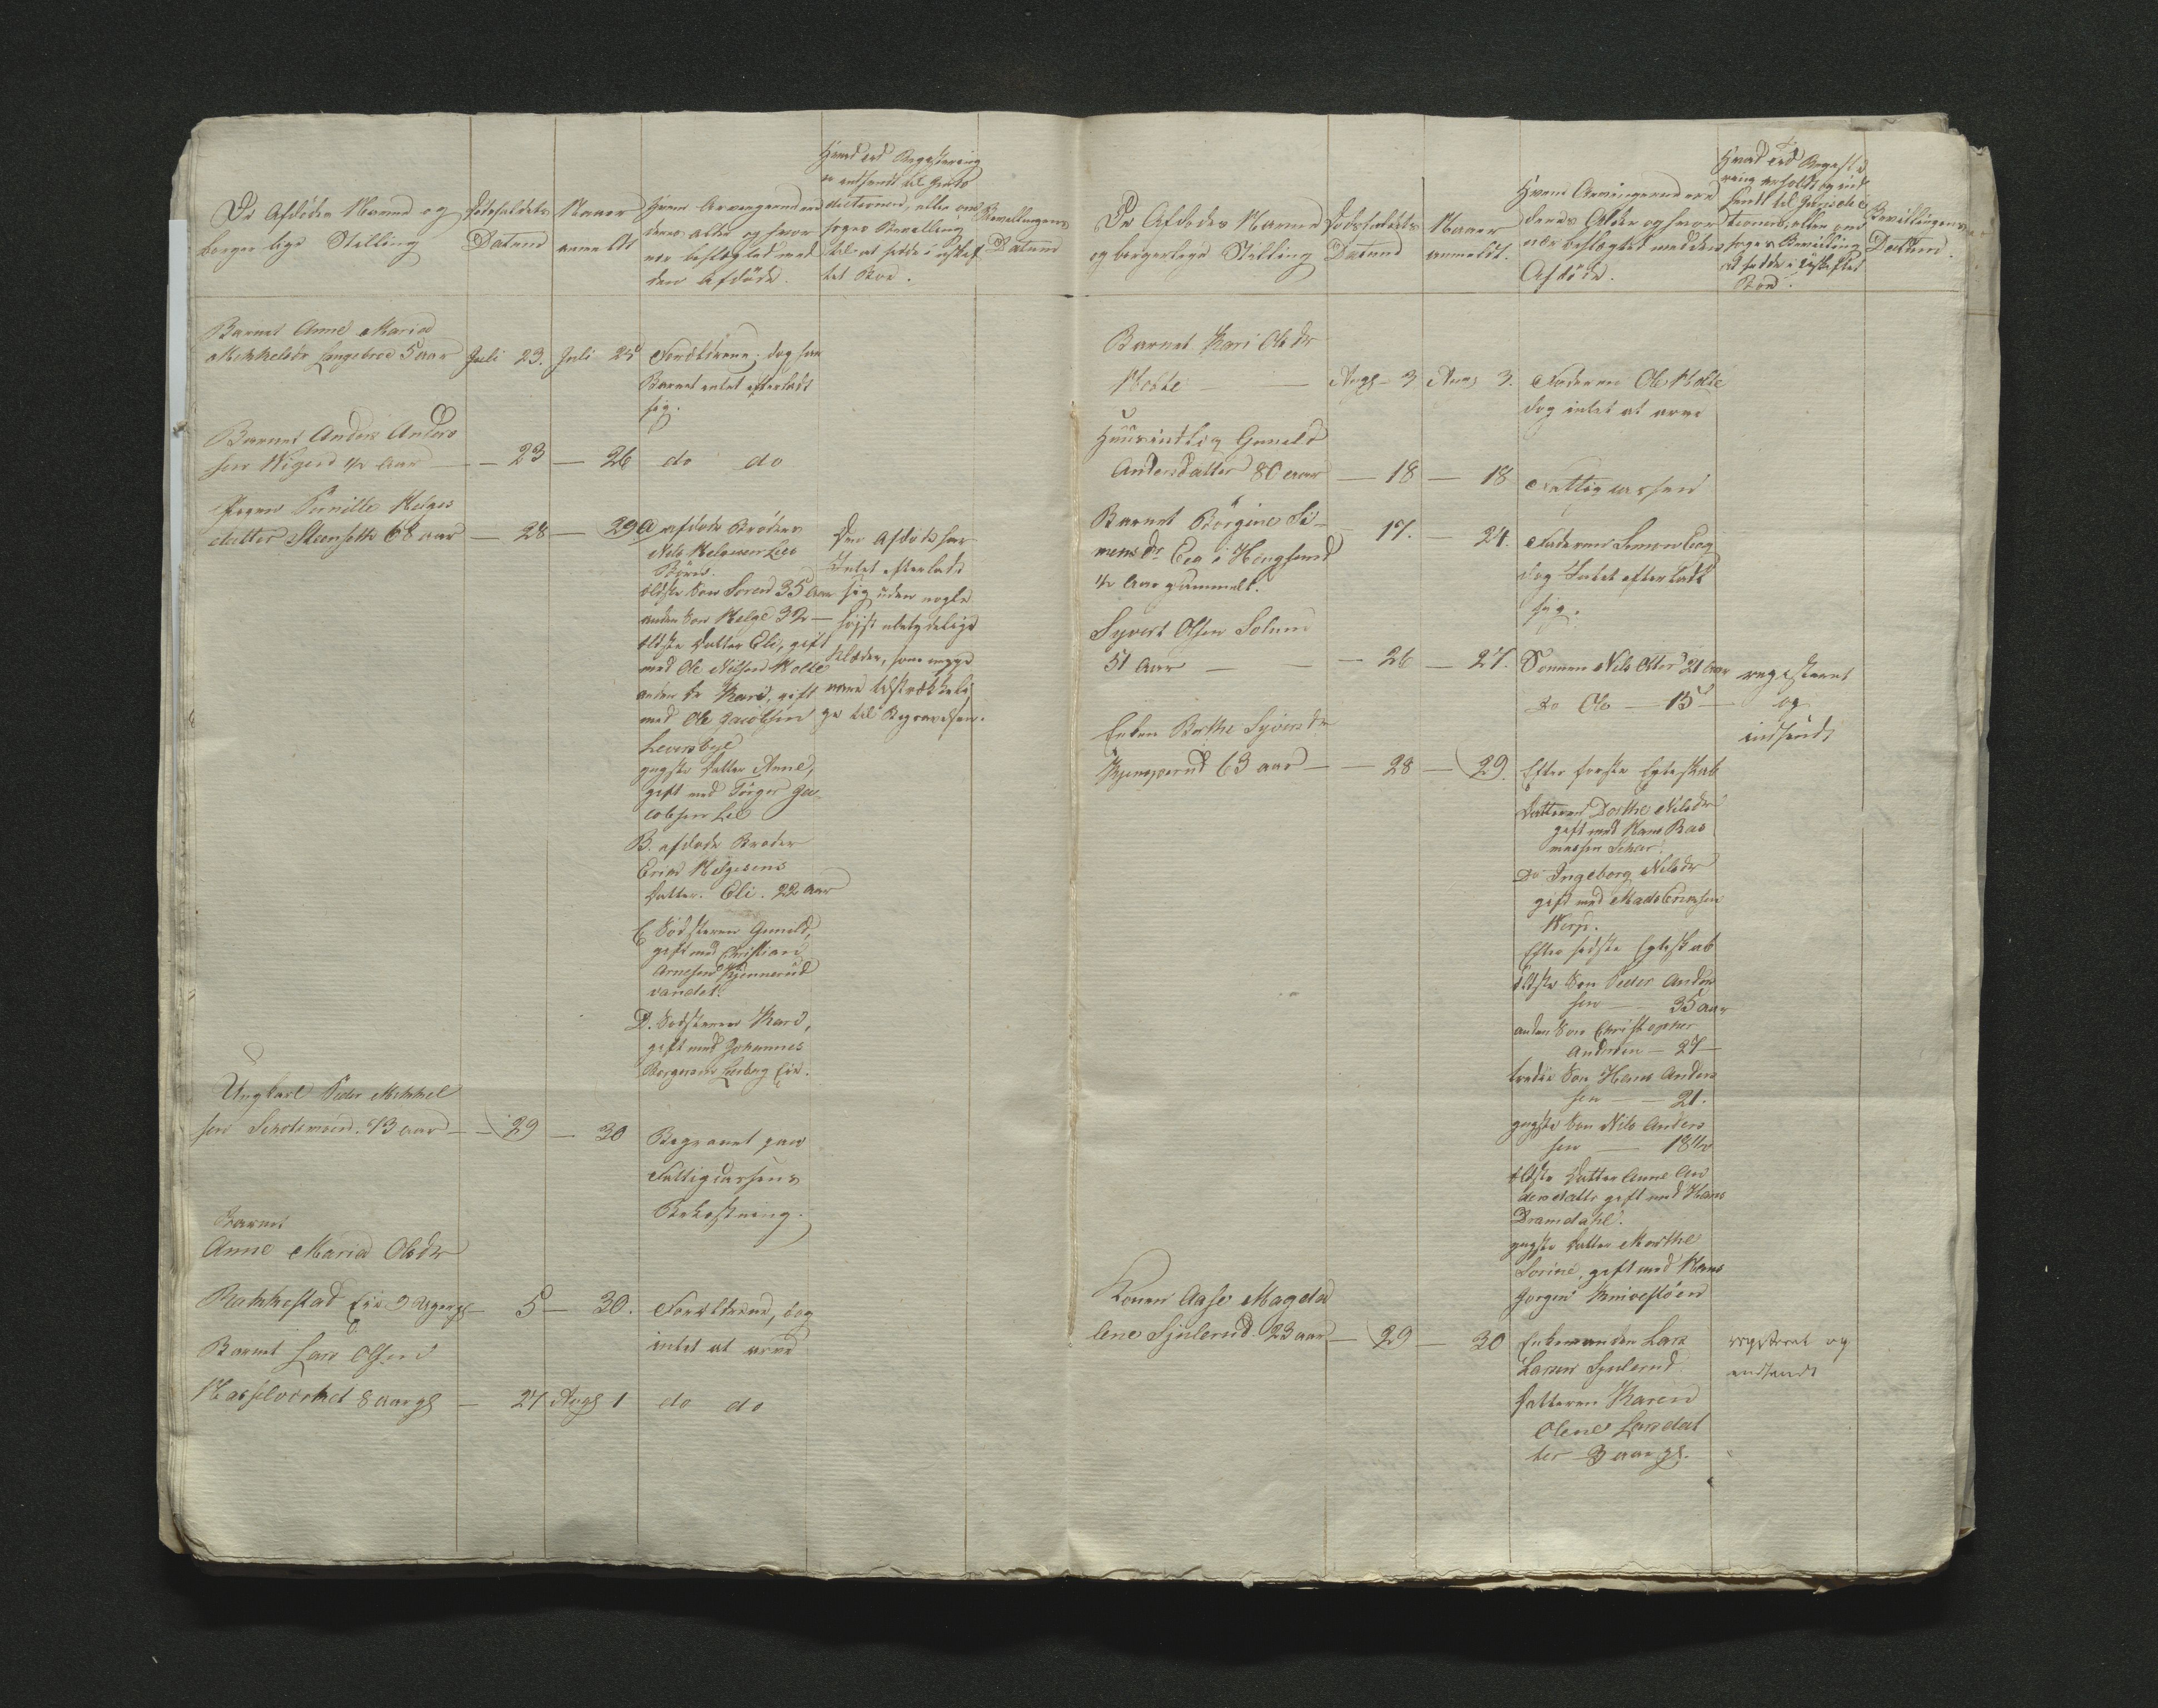 De Afdødes Navne og
borgerlige Stilling
Dødsfaldets
Datum
Naar
anmeldt
Hvem Arvingerne ere
deres Alder og hvor
nær beslægted med
den Afdøde.
Hvad ved Registrering
er indsendt til Juris
dictionen, eller om
søges Bevilling
til at sidde i uskif
tet Boe.
Bevillingens
Datum
Barnet Anne Maria
Mikkelsdr Langebroe 5 aar
Juli 23.
Juli 25
Forældrene; dog har
Barnet intet efterladt
sig.
Barnet Anders Anders
sen Wiger 1/2 Aar
— 23
— 26
do do
Pernille Helges
datter Steenseth 68 aar
— 28
— 29
A afdøde Broder
Nils Helgesen Lies
Børn.
ældste Søn Soren 35 Aar
anden Søn Helge 32 —
ældste Datter Eli, gift
med Ole Nilsen Holte
anden dr Kari, gift
med Ole Jacobsen
Leversbye
yngste Datter Anne,
gift med Torger Ja-
cobsen Lie
B. afdøde Broder
Erich Helgesens
Datter. Eli. 22 aar
C Södsteren Gunild,
gift med Christian
Arnesen Kjennerud
vandet.
D. Södsteren Kari,
gift med Johannes
Borgersen Leeberg Eie.
Den Afdøde har
Intet efterladt
sig uden nogle
høist ubetydelige
Klæder, som neppe
vare tilstrækkeli
ge til Begravelsen.
Ungkarl Peder Mikkel
sen Schotsmoen. 73 aar
— 29
— 30
Begravet paa
Fattigcassens
Bekostning.
Barnet
Anne Maria Olsdr
Rakkestad Eie 3 Uger gl
— 5
— 30.
Forældrene, dog
intet at arve
Barnet Lars Olsen
Hasselvæchet 8 aar gl
— 27
Augs 1
do do
De Afdødes Navne
og borgerlige Stilling
Dødsfaldets
Datum
Naar
anmeldt.
Hvem Arvingerne ere
deres Alder og hvor
nær beslægted med den
Afdöde.
Hvad ved Regist
rering erholdt og ind
sendt til Jurisdic
tionen, eller om
søges Bevilling
at sidde i uskiftet
Boe.
Bevillingens
Datum.
Barnet Kari Olsdr
Holte
Augs — 3
Aug 3.
Faderen Ole Holte
dog intet at arve
Huusinderst Gunild
Andersdatter 80 aar
— 18
— 18
Fattigcassen
Barnet Börgine Si-
mensdr Eea i Haugsund
1/2 Aar gammelt.
17.
— 24.
Faderen Simen Eea,
dog Intet efterladt
sig.
Syvert Olsen Solum
51 Aar
— 26
— 27.
Sönnen Nils Otter 21 Aar
Do Ole — 15 —
registreret
og
indsendt
Enken Berthe Syversdr
Kjemperud 63 aar
— 28
— 29.
Efter første Egteskab
Datteren Dorthe Nilsdr
gift med Hans Ras
mussen Scheer.
Do Ingeborg Nilsdr
gift med Mads Ericksen
Korp.
Efter sidste Egteskab
ældste Søn Peder Anders
sen — 35 aar
anden Søn Christopher
Andersen — 27 —
tredie Søn Hans Anders
sen — 21.
yngste Søn Nils Anders
sen — 18 1/2
ældste Datter Anne An
dersdatter gift med Hans
Dramdahl.
yngste Datter Marthe
Sorine, gift med Hans
Jorgen Knivesløen
Konen Aase Magda
lene Sjulerud 23 aar
— 29
— 30
Enkemanden Lars
Larsen Sjulerud
Datteren Karen
Olene Larsdat
ter 3 aar gl.
registreret og
indsendt